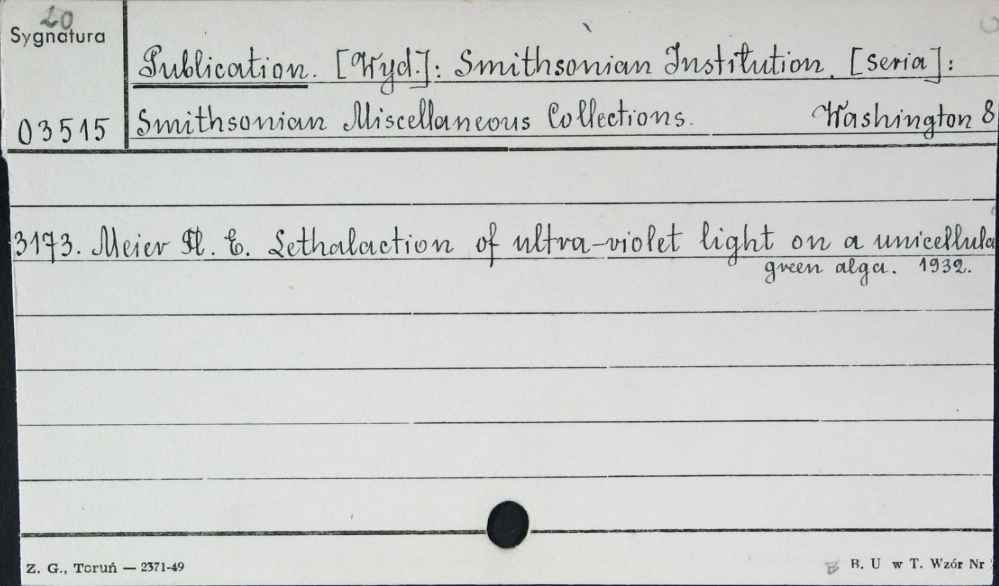 20
Sygnatura
Publication. [Wyd.]: Smithsonian Institution. [seria]:
03515 Smithsonian Miscellaneous Collections. Washington 8
3173. Meier Fl. E. Lethalaction of ultra-violet light on a unicellula
green alga. 1932.
Z. G., Toruń — 2371-49
B. U w T. Wzór Nr